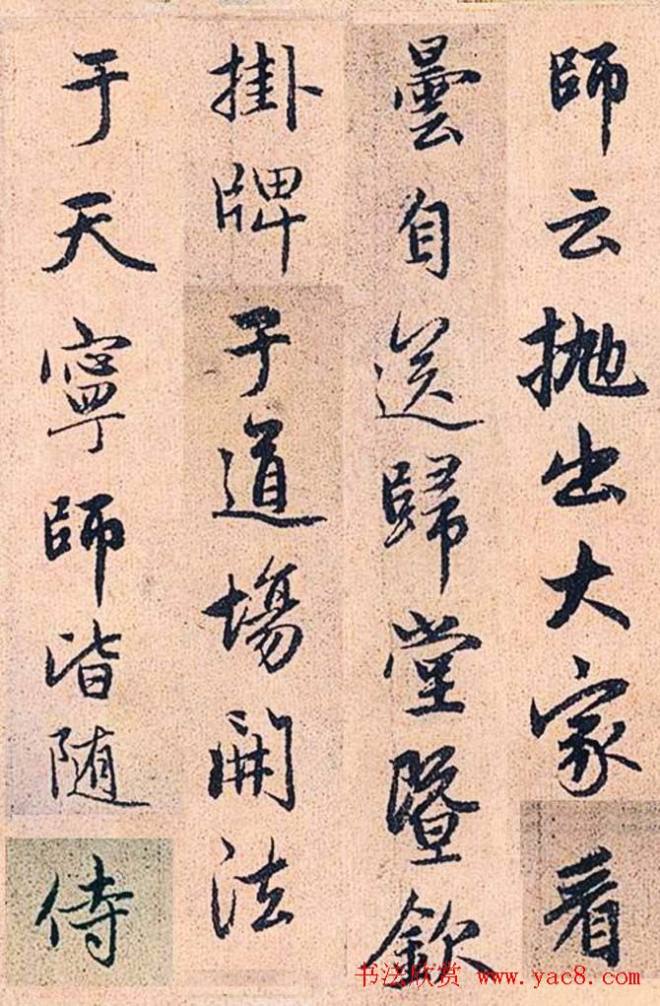 師云抛出大家看
曇自送歸堂暨欽
掛牌于道場開法
于天寧師皆随侍
书法欣赏 www.yac8.com